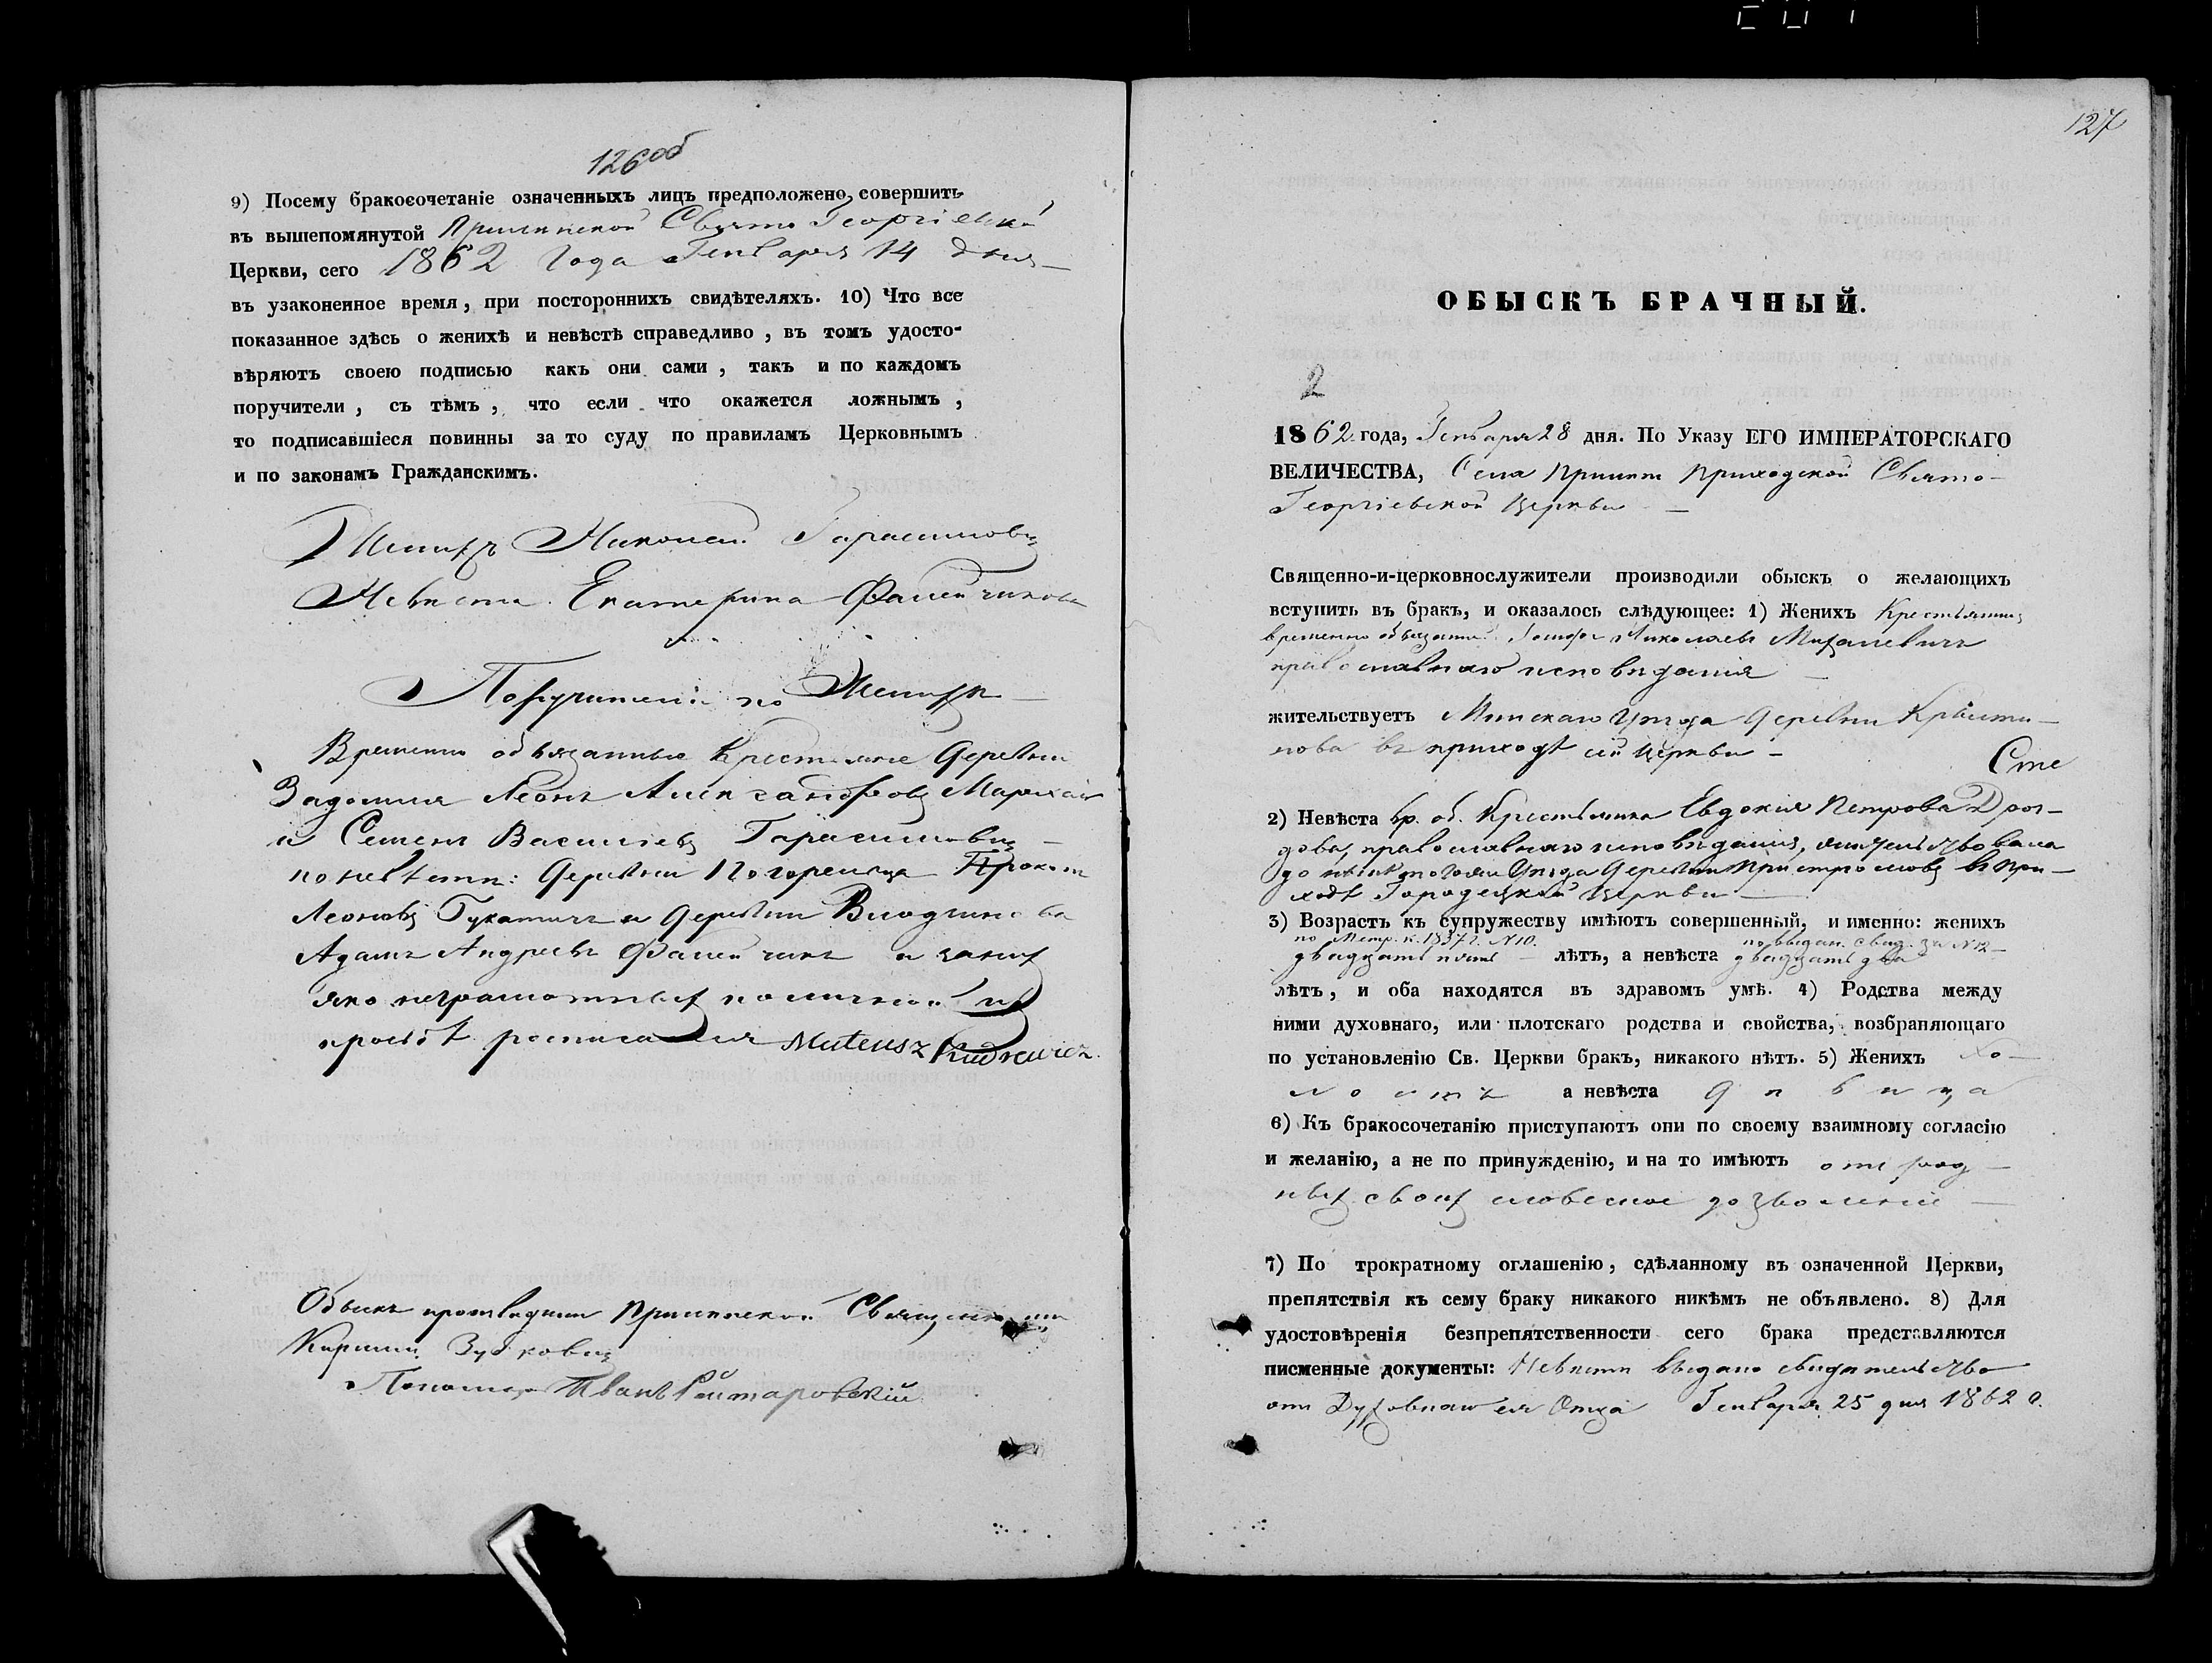 126об
9) Посему бракосочетаніе означенныхъ лицъ предположено, совершить
въ вышепомянутой Свято Георгіевской
Церкви, сего 1862 Года Генваря 14 дня
въ узаконенное время, при постороннихъ свидѣтеляхъ. 10) Что все
показанное здѣсь о женихѣ и невѣстѣ справедливо, въ томъ удосто-
вѣряютъ своею подписью какъ они сами, такъ и по каждомъ
поручители, съ тѣмъ, что если что окажется ложнымъ,
то подписавшіеся повинны за то суду по правиламъ Церковнымъ
и по законамъ Гражданскимъ.
Женихъ Николай Гарасимовъ
Невѣста Екатерина
Поручители по Женихѣ
Временно обязанные крестьяне деревни
Леонъ Александровъ
и Семенъ Васильевъ Гарасимовъ
по невѣсти: деревни
Леоновъ и деревни
Адамъ Андреевъ а за нихъ
яко неграмотныхъ по личной ихъ
просьбѣ росписался Mateusz
Обыскъ производили Священникъ
Кириллъ
Пономарь Иванъ
127
ОБЫСКЪ БРАЧНЫЙ.
2
1862 года, Генваря 28 дня. По Указу ЕГО ИМПЕРАТОРСКАГО
ВЕЛИЧЕСТВА, Села Приходской Свято-
Георгіевской Церкви
Священно-и-церковнослужители производили обыскъ о желающихъ
вступить въ бракъ, и оказалось слѣдующее: 1) Женихъ Крестьянинъ
временно обязанный Николаевъ
православнаго исповѣданія
жительствуетъ Минскаго Уѣзда деревни
въ приходѣ сей церкви
2) Невѣста вр. об. Крестьянка Евдокія Петрова
православнаго исповѣданія, жительствовала
до Уѣзда деревни въ при-
ходѣ Городецкой Церкви
3) Возрастъ къ супружеству имѣютъ совершенный, и именно: женихъ
по Метр. к. 1837 г. N 10. по выдан. свид. за N 12
двадцать пять лѣтъ, а невѣста двадцать два
лѣтъ, и оба находятся въ здравомъ умѣ. 4) Родства между
ними духовнаго, или плотскаго родства и свойства, возбраняющаго
по установленію Св. Церкви бракъ, никакого нѣтъ. 5) Женихъ Хо-
лостъ а невѣста дѣвица
6) Къ бракосочетанію приступаютъ они по своему взаимному согласію
и желанію, а не по принужденію, и на то имѣютъ отъ род-
ныхъ своихъ словесное дозволеніе
7) По трократному оглашенію, сдѣланному въ означенной Церкви,
препятствія къ сему браку никакого никѣмъ не объявлено. 8) Для
удостовѣренія безпрепятственности сего брака представляются
писменные документы: Невѣсти выдано свидѣтельство
отъ Духовнаго ея Отца Генваря 25 дня 1862 г.